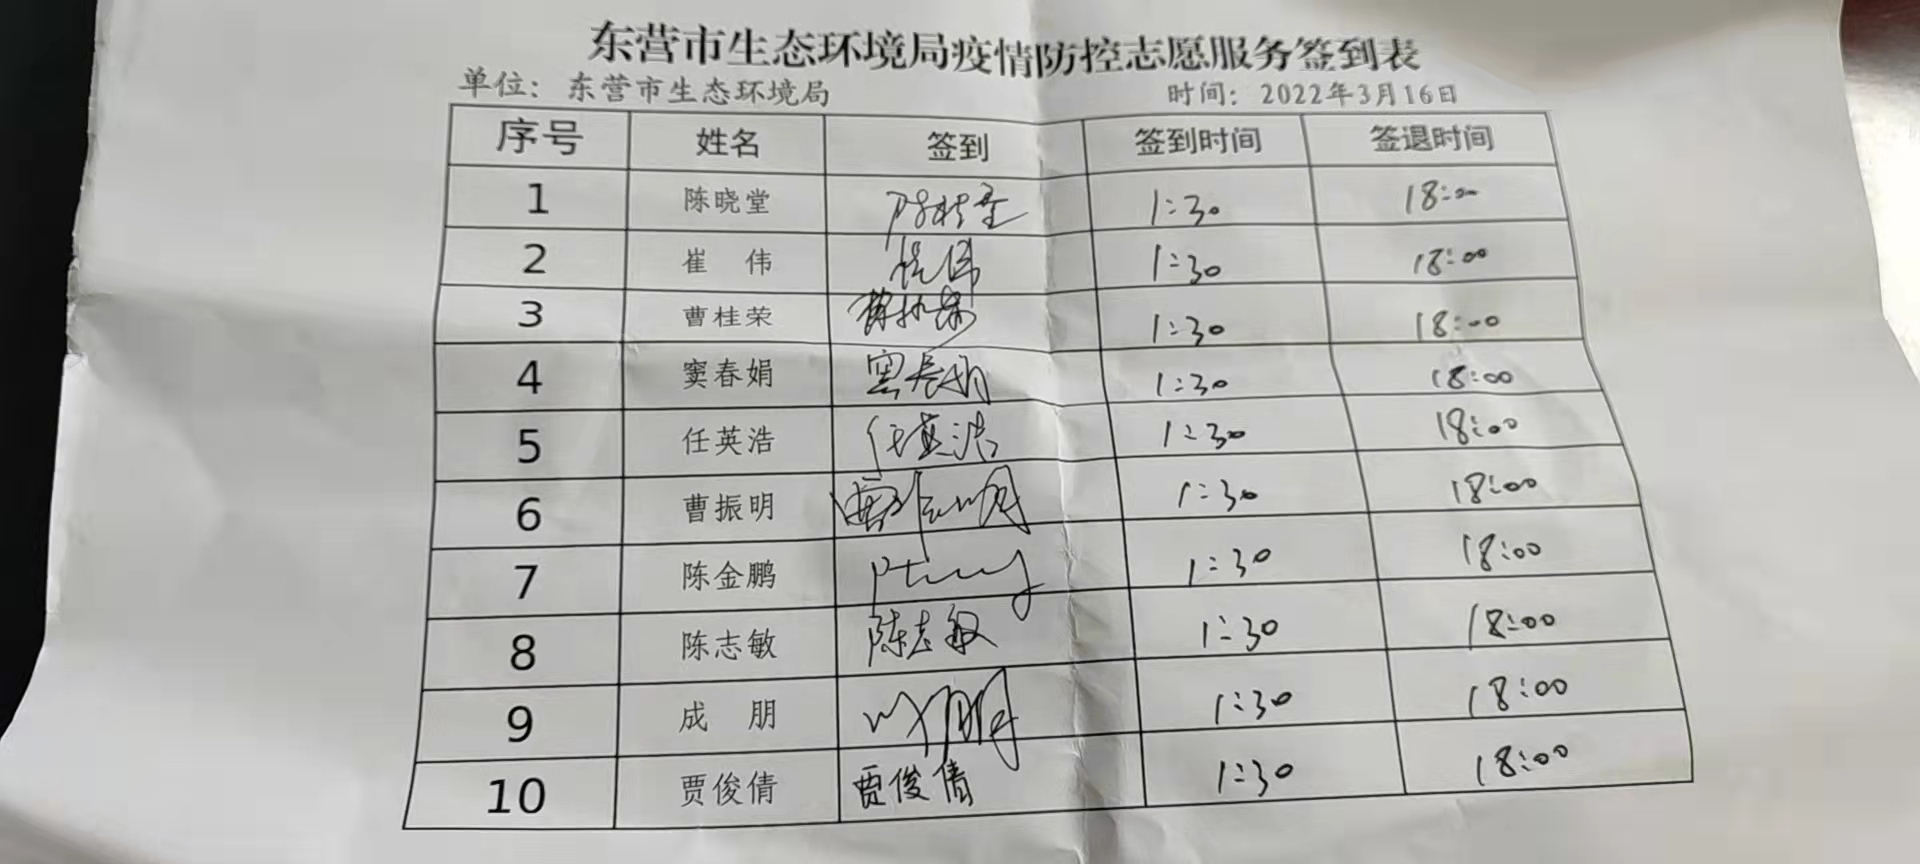 东营市生态环境局疫情防控志愿服务签到表
单位：东营市生态环境局 时间：2022年3月16日
序号 姓名 签到 签到时间 签退时间
1 陈晓堂 1:30 18:00
2 崔 伟 崔伟 1:30 18:00
3 曹桂荣 曹桂荣 1:30 18:00
4 窦春娟 窦春娟 1:30 18:00
5 任英浩 任英浩 1:30 18:00
6 曹振明 曹振明 1:30 18:00
7 陈金鹏 1:30 18:00
8 陈志敏 陈志敏 1:30 18:00
9 成 朋 成朋 1:30 18:00
10 贾俊倩 贾俊倩 1:30 18:00